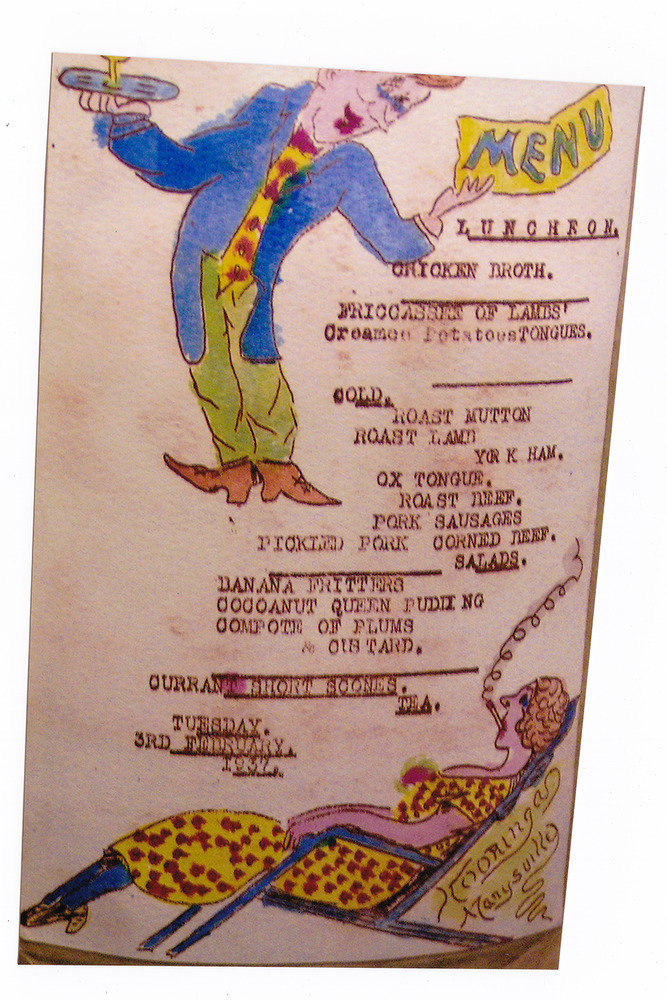 MENU
LUNCHEON.
CHICKEN BROTH.
FRICCASSEE OF LAMBS'
Creamed Potatoes TONGUES.
COLD.
ROAST MUTTON
ROAST LAMB
YORK HAM.
OX TONGUE.
ROAST BEEF.
PORK SAUSAGES
PICKLED PORK CORNED BEEF.
SALADS.
BANANA FRITTERS
COCOANUT QUEEN PUDDING
COMPOTE OF PLUMS
& CUSTARD.
CURRANT SHORT SCONES.
TEA.
TUESDAY.
3RD FEBRUARY.
1937.
Kooringa
Marysville